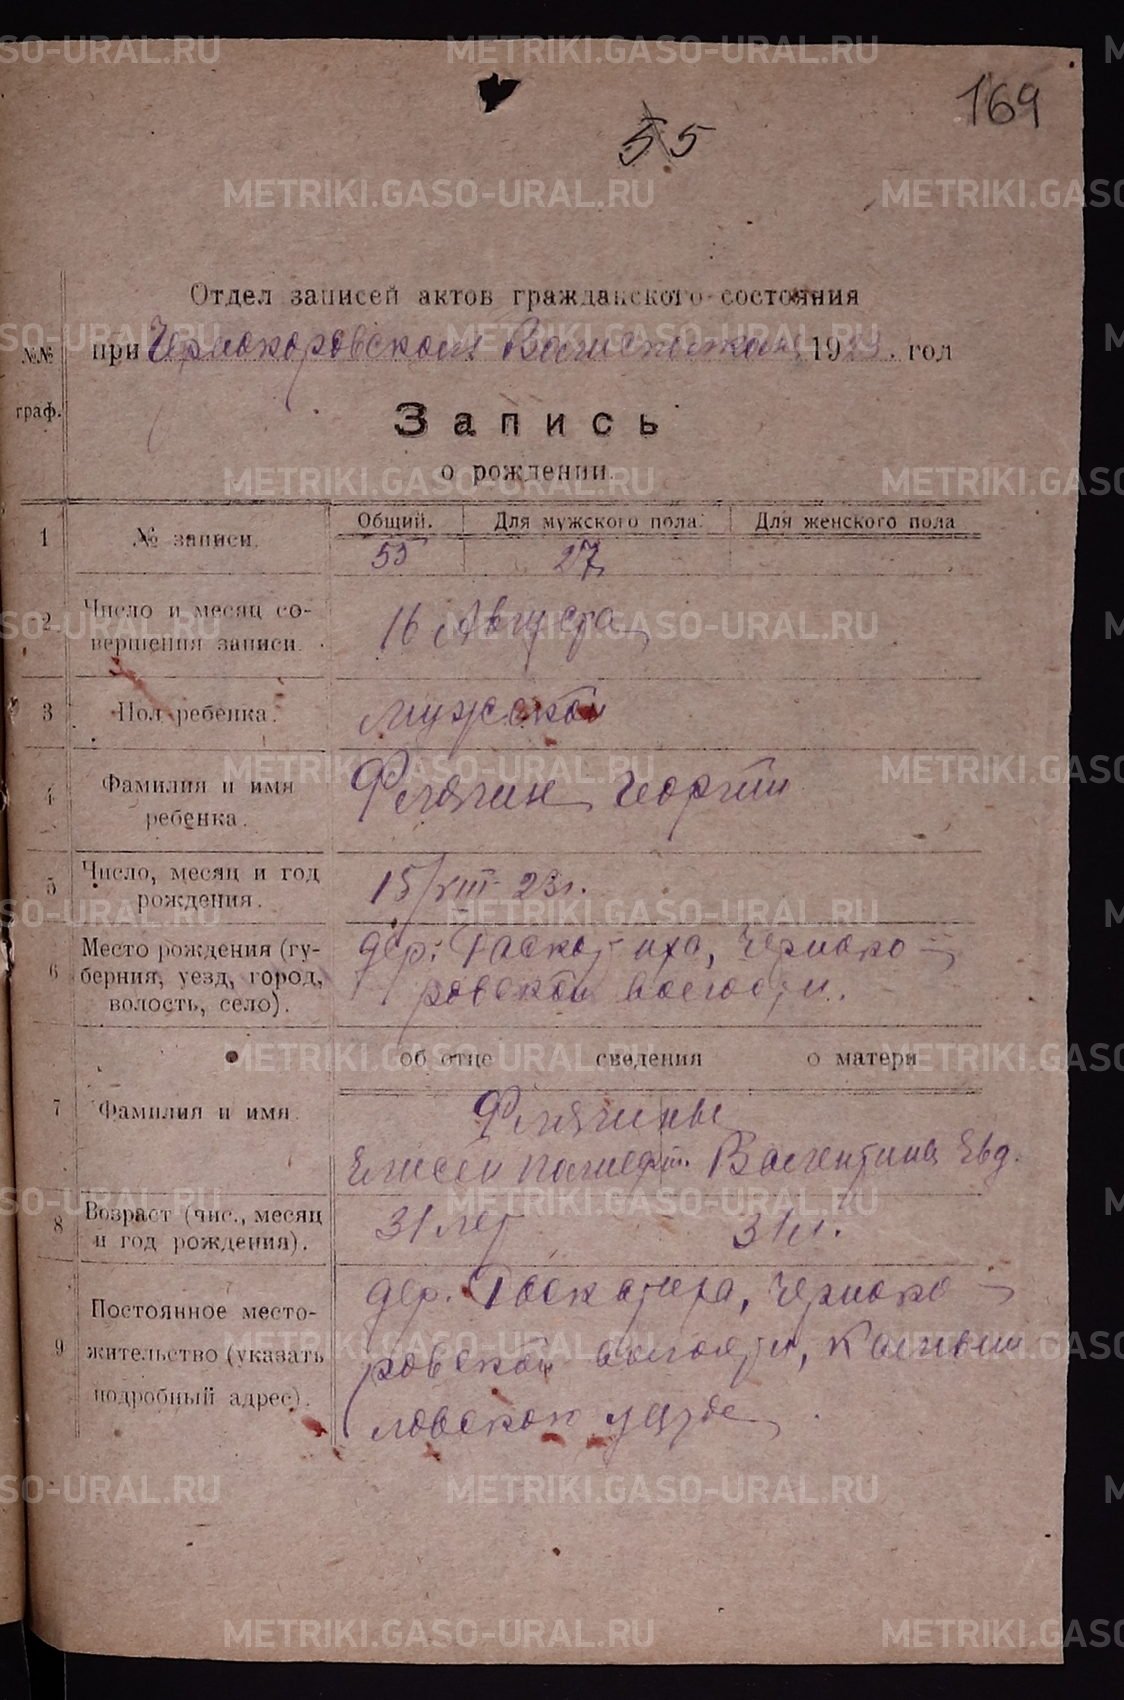 169
55
Отдел записей актов гражданского состояния
№№ при Чернокоровском Волисполкоме 1923 год
граф.
Запись
о рождении.
Общий. Для мужского пола. Для женского пола
1 № записи. 55 27
2 Число и месяц со-
вершения записи. 16 Августа
3 Пол ребенка. мужской
4 Фамилия и имя
ребенка. Флягин Георгий
5 Число, месяц и год
рождения. 15/VIII-23г.
6 Место рождения (гу-
берния, уезд, город,
волость, село).
дер. Раскатиха, Черноко-
ровской волости.
об отце сведения о матери
7 Фамилия и имя. Флягины
Елисей Валентина Евд.
8 Возраст (чис., месяц
и год рождения). 31 лет 31 л.
9 Постоянное место-
жительство (указать
подробный адрес).
дер. Раскатиха, Черноко-
ровской волости, Камыш
ловского уезда
METRIKI.GASO-URAL.RU